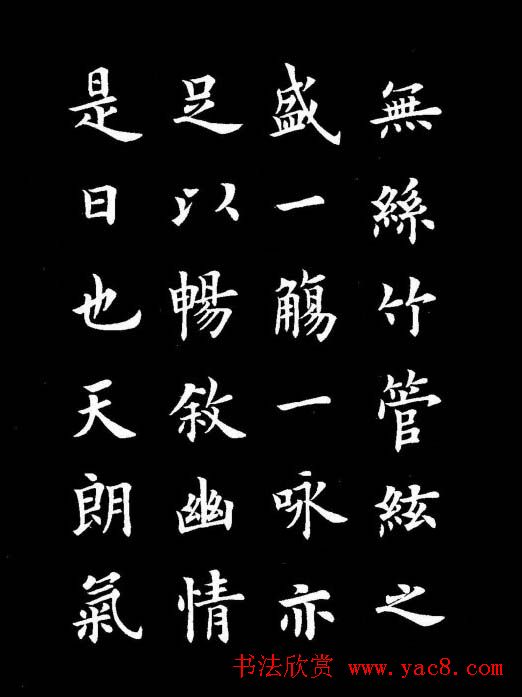 無絲竹管絃之
盛一觴一咏亦
足以暢敘幽情
是日也天朗氣
书法欣赏 www.yac8.com